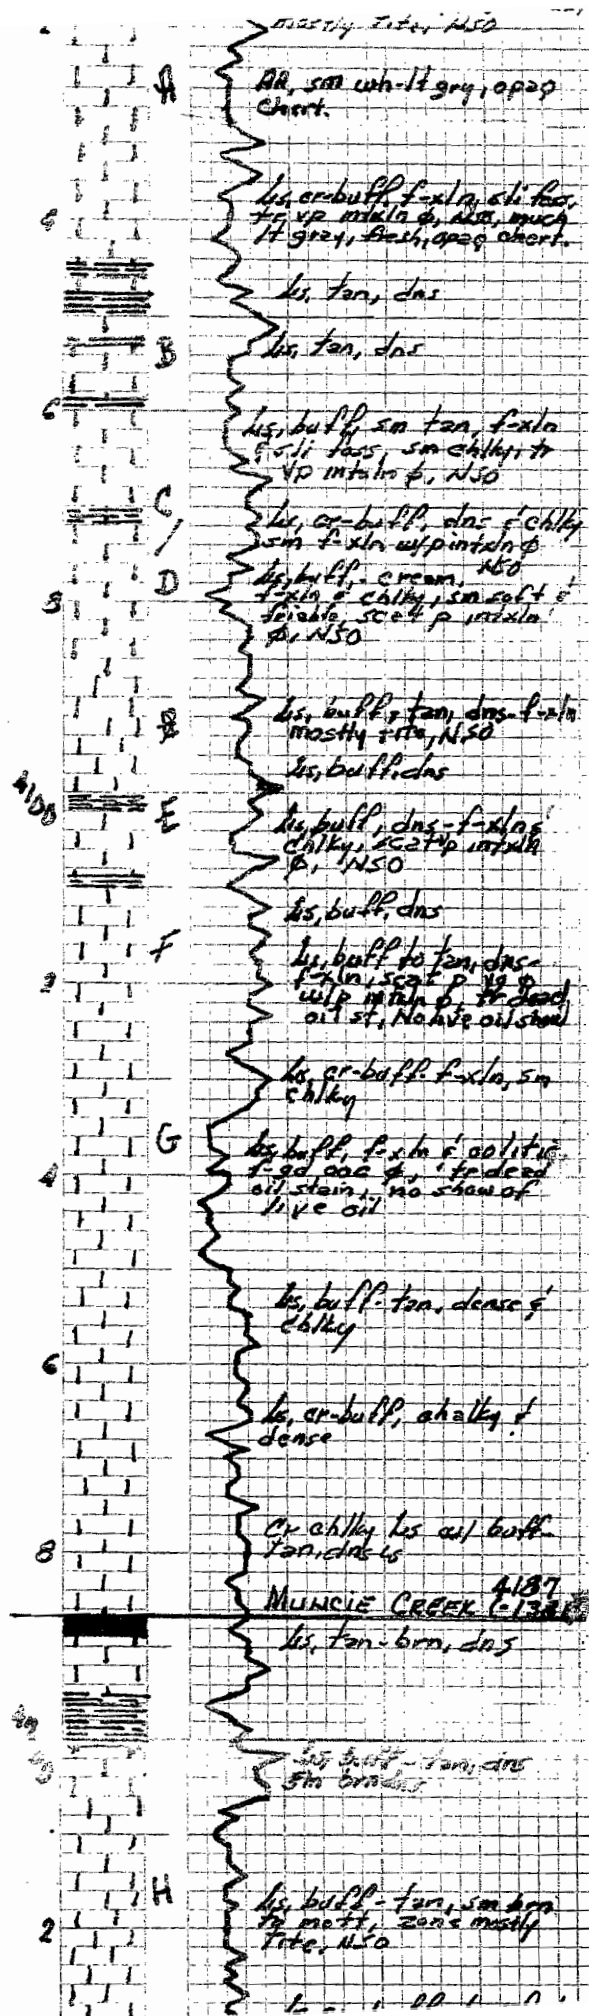 mostly tite, NSO
A
AA, sm wh-lt gry, opaq
chert.
Ls, cr-buff, f-xln, sli foss,
tr vp intxln φ, NSO, much
lt gray, fresh, opaq chert.
4
Ls, tan, dns
B
Ls, tan, dns
6
Ls, buff, sm tan, f-xln
& sli foss, sm chlky, tr
vp intxln φ, NSO
C
/
Ls, cr-buff, dns & chlky
sm f-xln w/p intxln φ
NSO
D
Ls, buff-cream,
f-xln & chlky, sm soft &
friable, scat p intxln
φ, NSO
8
Ls, buff-tan, dns-f-xln
mostly tite, NSO
Ls, buff, dns
4100
E
Ls, buff, dns-f-xln &
chlky, scat vp intxln
φ, NSO
Ls, buff, dns
F
Ls, buff to tan, dns-
f-xln, scat p vg φ
w/p intxln φ, tr dead
oil st, No live oil show
2
Ls, cr-buff f-xln, sm
chlky
G
Ls, buff, f-xln & oolitic
f-gd ooc φ, tr dead
oil stain, no show of
live oil
4
Ls, buff-tan, dense &
chlky
6
Ls, cr-buff, chalky &
dense
Cr chlky Ls w/ buff-
tan, dns Ls
8
4187
MUNCIE CREEK
Ls, tan-brn, dns
Ls, buff-tan, dns
sm brn dns
H
Ls, buff-tan, sm brn
to mott, zone mostly
tite, NSO
2